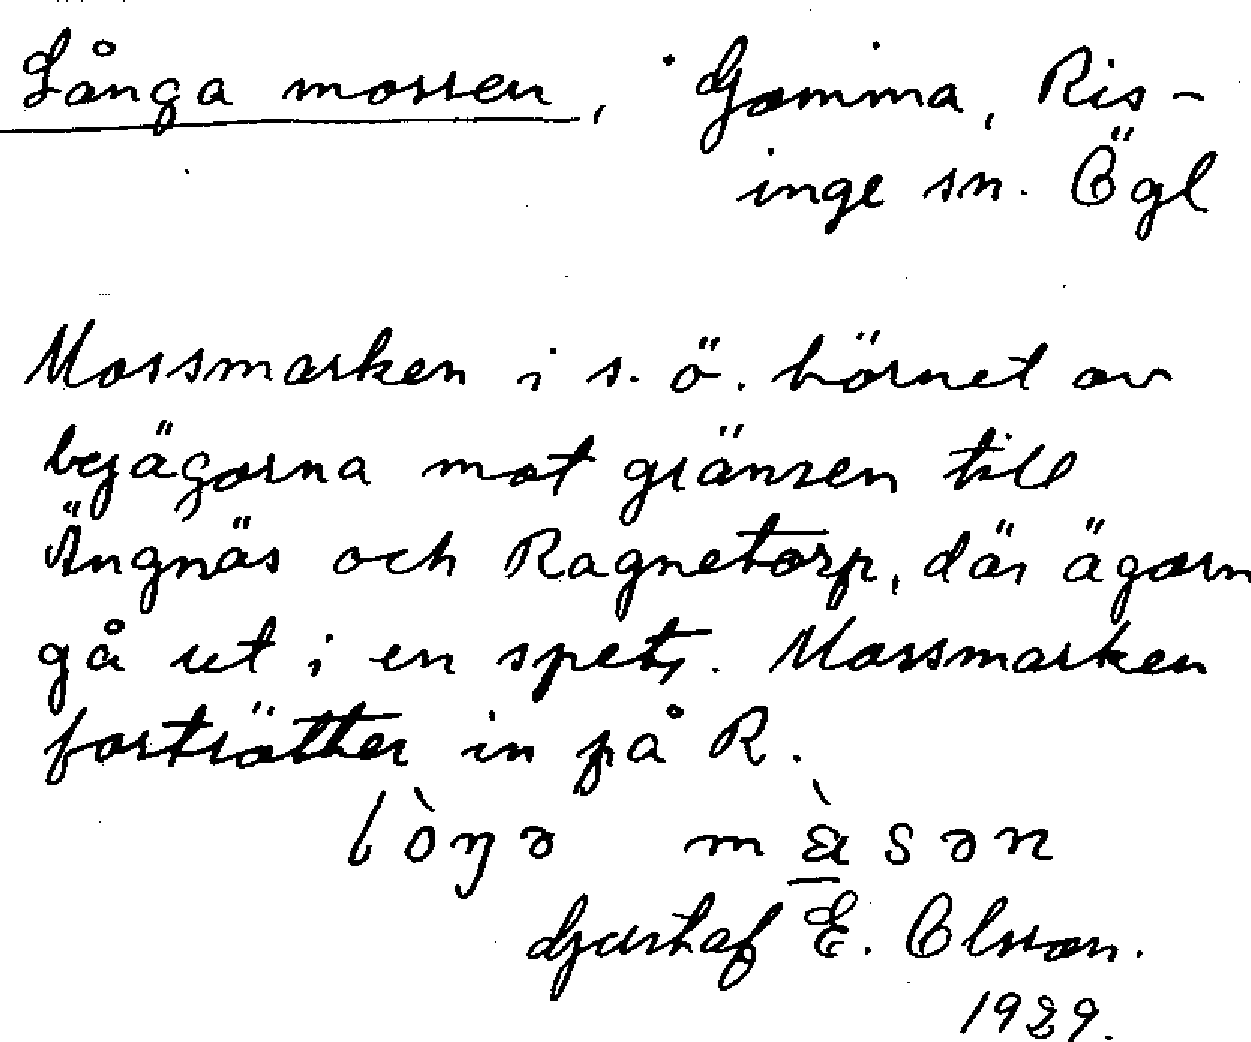 Långa mossen, Gamma, Ris-
inge sn. Ögl
Mossmarken i s.ö. hörnet av
byägorna mot gränsen till
Ängnäs och Ragnetorp, där ägorn
gå ut i en spets. Mossmarken
fortsätter in på R.
Gustaf E. Olsson.
1929.